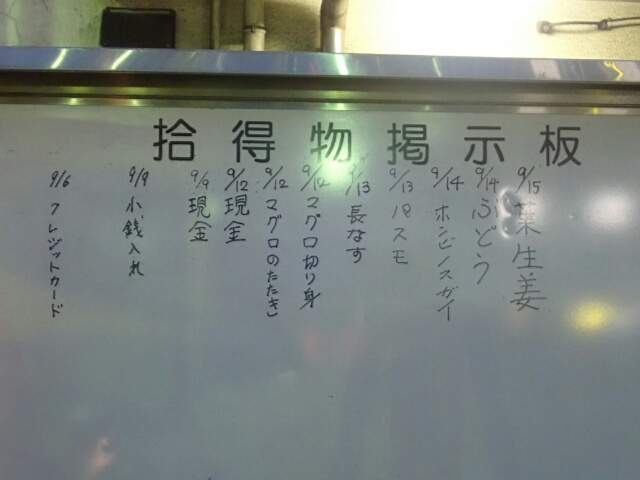 拾得物掲示板
9/15 葉生姜
9/14 ぶどう
9/14 ホンビノスガイ
9/13 パスモ
9/13 長なす
9/12 マグロ切り身
9/12 マグロのたたき
9/12 現金
9/9 現金
9/9 小銭入れ
9/6 クレジットカード